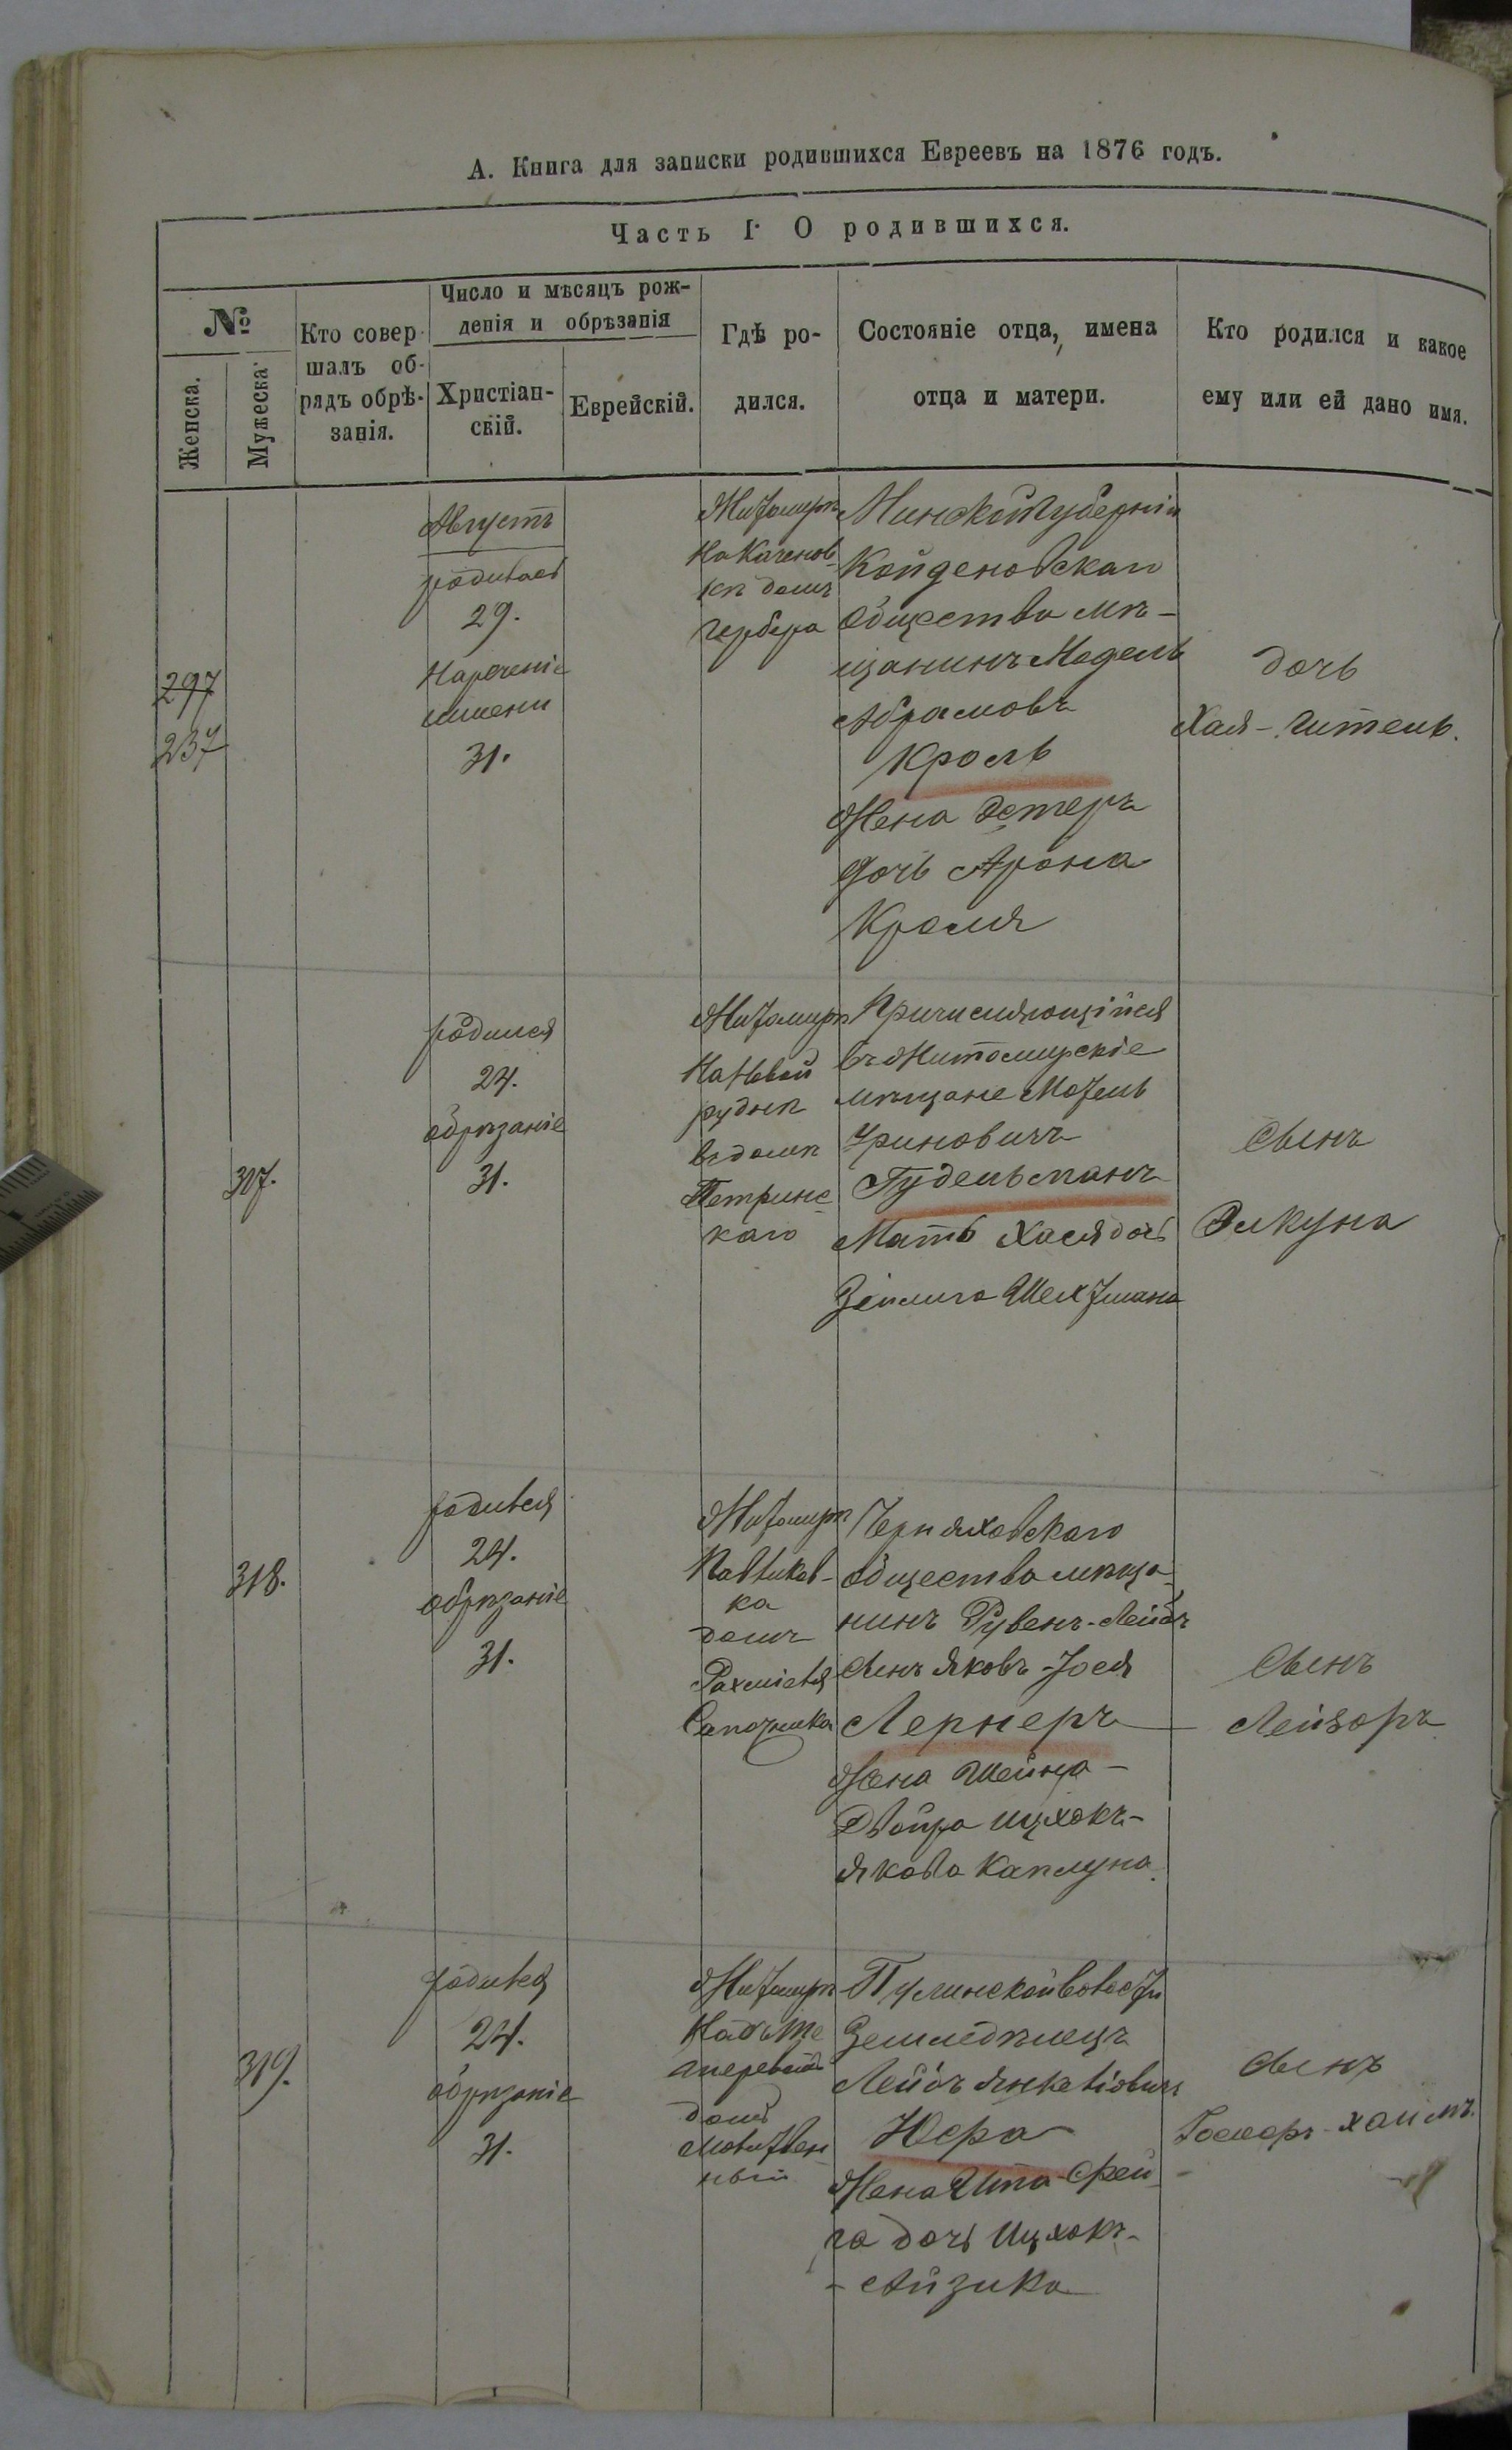 А. Книга для записки родившихся Евреевъ на 1876 годъ.
Часть I. О родившихся.
№
Женска.
Мужеска
Кто совер-
шалъ об-
рядъ обрѣ-
занія.
Число и мѣсяцъ рож-
денія и обрѣзанія
Христіан-
скій.
Еврейскій.
Гдѣ ро-
дился.
Состояніе отца, имена
отца и матери.
Кто родился и какое
ему или ей дано имя.
297
237
Августъ
родилась
29.
Нареченіе
имени
31.
Житомирѣ
На Каченов-
кѣ домъ
Гербера
Минской Губерніи
Койденовскаго
Общества мѣ-
щанинъ Модель
Абрамовъ
Кроль
Жена Эстеръ
дочь Арона
Кроля
дочь
Хая-Гитель.
317.
родился
24.
обрѣзаніе
31.
Житомирѣ
На Новой
руднѣ
въ домѣ
Петринс-
каго
Причисляющійся
въ Житомирскіе
мѣщане Мотель
Уриновичъ
Гудельманъ
Мать Хася дочь
Зейлига Шехтмана
Сынъ
Элкуна
318.
родился
24.
обрѣзаніе
31.
Житомирѣ
Павликов-
ка
домъ
Рахміеля
Сапожника
Черняховскаго
общества мѣща-
нинъ Рувенъ-Лейбъ
сынъ Яковъ-Іося
Лернеръ
Жена Шейна-
Двойра Ицхокъ-
Якова Каплуна.
Сынъ
Лейзоръ
319.
родился
24.
обрѣзаніе
31.
Житомирѣ
домъ
Молитвен
ный
Пулинской волости
Земледѣлецъ
Лейбъ Янкеліовичъ
Юсра
Жена Ита-Фей-
га дочь Ицхокъ-
-Айзика
сынъ
-Хаимъ.